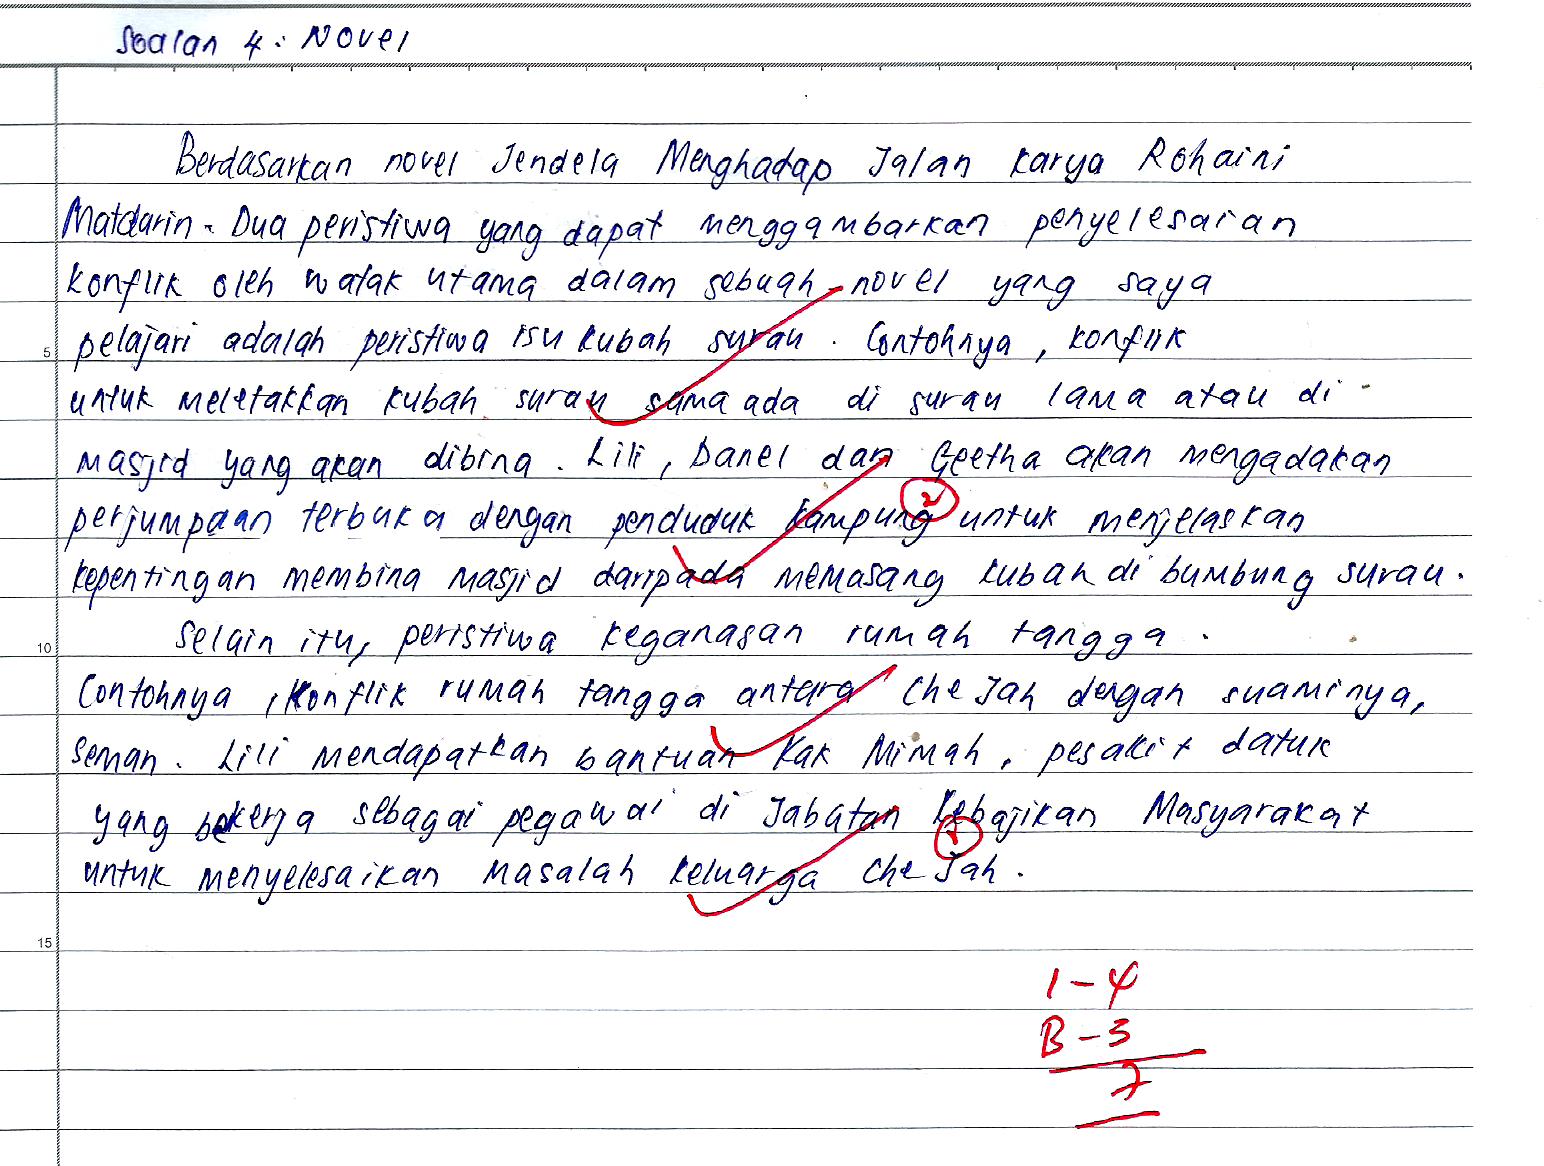 Soalan 4: Novel
Berdasarkan novel Jendela Menghadap Jalan karya Rohaini
Matdarin. Dua peristiwa yang dapat menggambarkan penyelesaian
konflik oleh watak utama dalam sebuah novel yang saya
pelajari adalah peristiwa isu kubah surau. Contohnya, konflik
5
untuk meletakkan kubah surau sama ada di surau lama atau di
masjid yang akan dibina. Lili, Danel dan Geetha akan mengadakan
2
perjumpaan terbuka dengan penduduk kampung untuk menjelaskan
kepentingan membina masjid daripada memasang kubah di bumbung surau.
Selain itu, peristiwa keganasan rumah tangga.
10
Contohnya, konflik rumah tangga antara Che Jah dengan suaminya,
Seman. Lili mendapatkan bantuan Kak Mimah, pesakit datuk
yang bekerja sebagai pegawai di Jabatan Kebajikan Masyarakat
untuk menyelesaikan masalah keluarga Che Jah.
15
1 - 4
B - 3
7